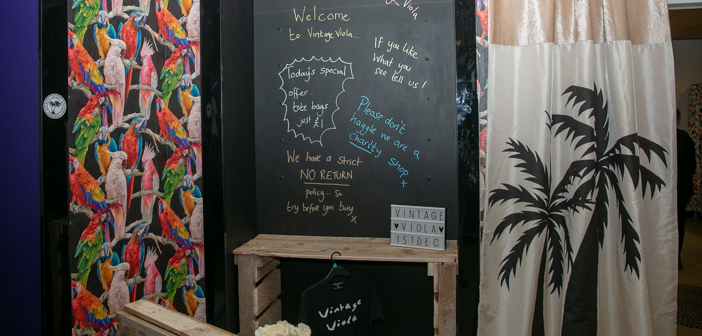 Viola
Welcome
to Vintage Viola...
If you like
what you
see tell us!
Today's special
offer...
tote bags
just £1
Please don't
haggle we are a
Charity shop
x
We have a strict
NO RETURN
policy... so
try before you buy
x
VINTAGE
♥ VIOLA ♥
1STDEC
Vintage
Viola